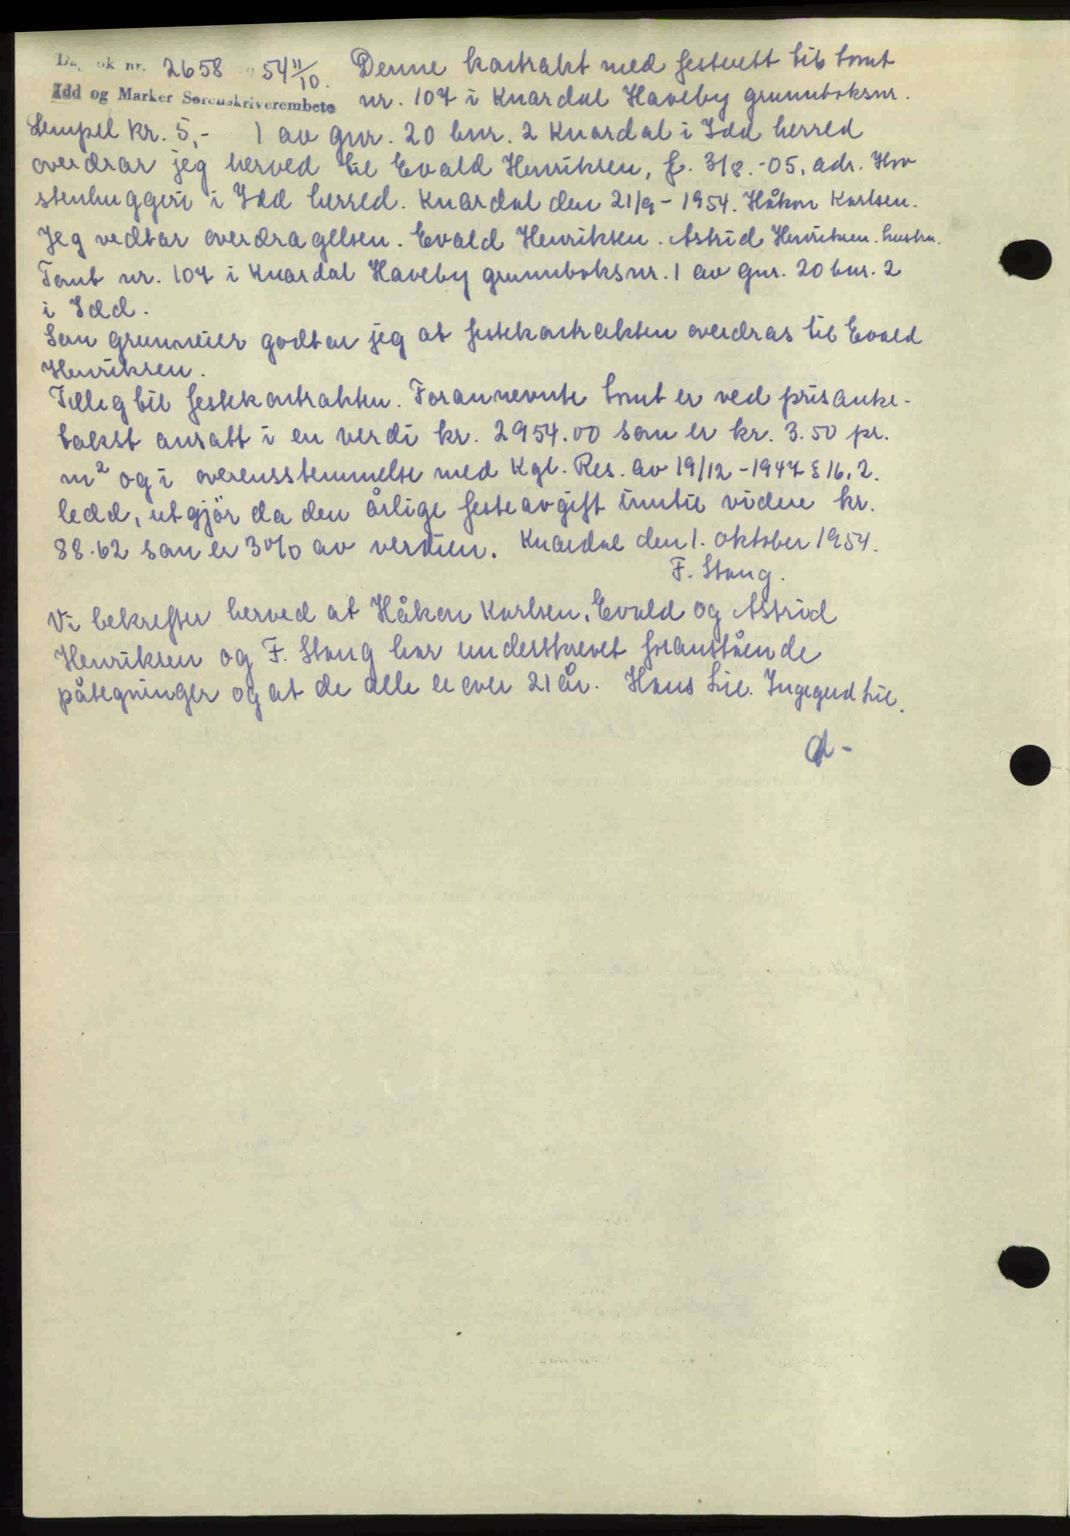 Dagbok nr. 2658 1954 11/10. Denne kontrakt med festerett til tomt
Idd og Marker Sorenskriverembete nr. 107 i Knardal Haveby grunnboksnr.
Stempel kr. 5,- 1 av gnr. 20 bnr. 2 Knardal i Idd herred
overdrar jeg herved til Evald Henriksen, f. 3/8.-05, adr. Hov
stenhuggeri i Idd herred. Knardal den 21/9-1954. Håkon Karlsen.
Jeg vedtar overdragelsen. Evald Henriksen. Astrid Henriksen. hustru.
Tomt nr. 107 i Knardal Haveby grunnboksnr. 1 av gnr. 20 bnr. 2
i Idd.
Som grunneier godtar jeg at festekontrakten overdras til Evald
Henriksen.
Tillegg til festekontrakten. Forannevnte tomt er ved prisanke-
takst ansatt i en verdi kr. 2954.00 som er kr. 3.50 pr.
m² og i overensstemmelse med Kgl. Res. av 19/12-1947 § 16, 2.
ledd, utgjör da den årlige festeavgift inntil videre kr.
88.62 som er 3% av verdien. Knardal den 1. oktober 1954.
F. Stang.
Vi bekrefter herved at Håkon Karlsen, Evald og Astrid
Henriksen og F. Stang har underskrevet foranstående
påtegninger og at de alle er over 21 år. Hans Lie. Ingegerd Lie.